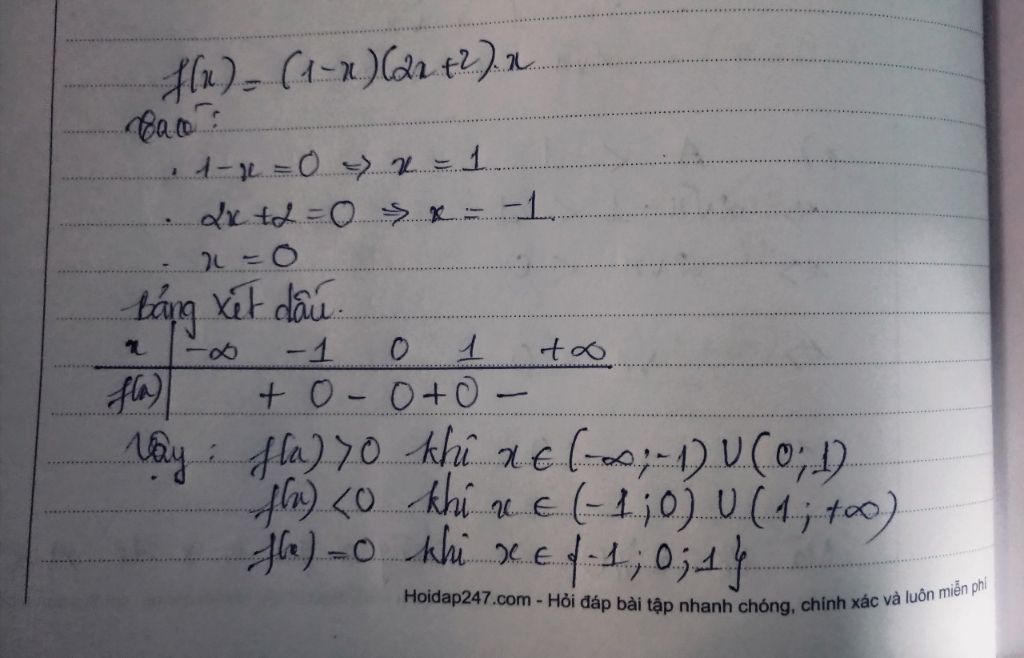 f(x) = (1-x)(2x+2).x
. 1-x=0 => x = 1
. 2x+2=0 => x = -1.
- x = 0
bảng xét dấu.
x | -∞ -1 0 1 +∞
f(x) | + 0 - 0 + 0 -
Vậy : f(x) >0 khi x ∈ (-∞;-1) ∪ (0;1)
f(x) <0 khi x ∈ (-1;0) ∪ (1;+∞)
f(x) =0 khi x ∈ {-1;0;1}
Hoidap247.com - Hỏi đáp bài tập nhanh chóng, chính xác và luôn miễn phí